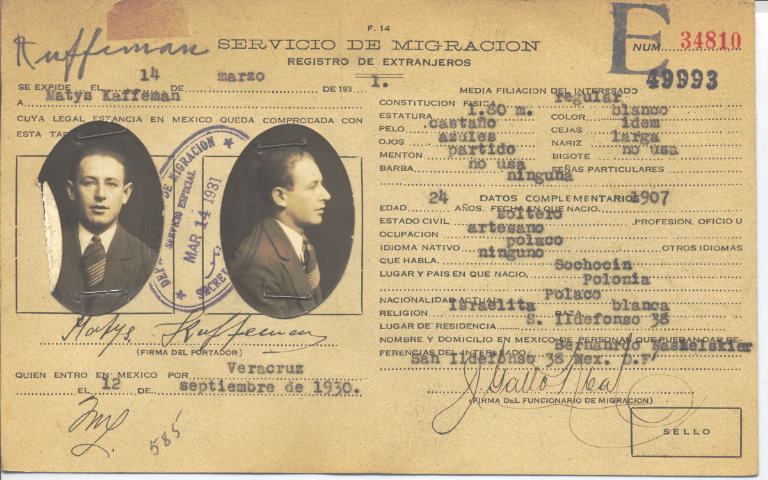 F. 14
Kuffeman
SERVICIO DE MIGRACION
REGISTRO DE EXTRANJEROS
E NUM. 34810
49993
SE EXPIDE EL 14 DE marzo DE 193 1.
A Matys Kaffeman
CUYA LEGAL ESTANCIA EN MEXICO QUEDA COMPROBADA CON
ESTA TAR
DE MIGRACION
SERVICIO ESPECIAL
MAR 14 1931
Matys Kuffeman
(FIRMA DEL PORTADOR)
QUIEN ENTRO EN MEXICO POR Veracruz
EL 12 DE septiembre de 1930.
585
MEDIA FILIACION DEL INTERESADO
CONSTITUCION FISICA regular
ESTATURA 1.60 m. COLOR blanco
PELO castaño CEJAS idem
OJOS azules NARIZ larga
MENTON partido BIGOTE no usa
BARBA no usa SEÑAS PARTICULARES
ninguna
DATOS COMPLEMENTARIOS
EDAD 24 AÑOS. FECHA EN QUE NACIO 1907
ESTADO CIVIL soltero PROFESION, OFICIO U
OCUPACION artesano
IDIOMA NATIVO polaco OTROS IDIOMAS
QUE HABLA ninguno
LUGAR Y PAIS EN QUE NACIO Sochocin
Polonia
NACIONALIDAD ACTUAL Polaco
RELIGION Israelita RAZA blanca
LUGAR DE RESIDENCIA S. Ildefonso 38
NOMBRE Y DOMICILIO EN MEXICO DE PERSONAS QUE PUEDAN DAR RE-
FERENCIAS DEL INTERESADO Bernardo
San Ildefonso 38 Mex. D.F
(FIRMA DEL FUNCIONARIO DE MIGRACION)
SELLO